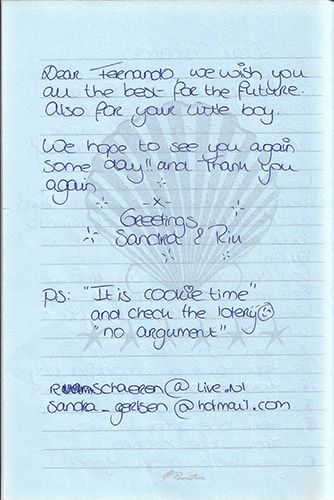 Dear Fernando, we wish you
all the best for the future.
Also for your little boy.
We hope to see you again
some day!! and Thank you
again
-x-
Greetings
Sandra & Riu
ps: "It is cookie time"
and check the lotery☺
"no argument"
schaeren@live.nl
sandra_gerlsen@hotmail.com